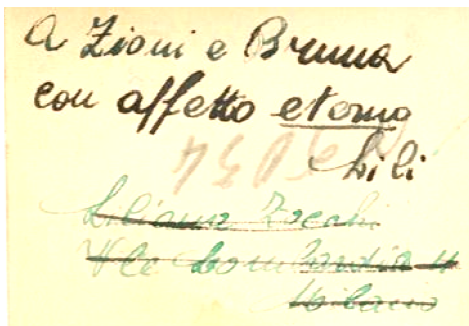 A Zioni e Bruna
con affetto eterno
Lili
Liliana Zocchi
V.le Lombardia
Milano